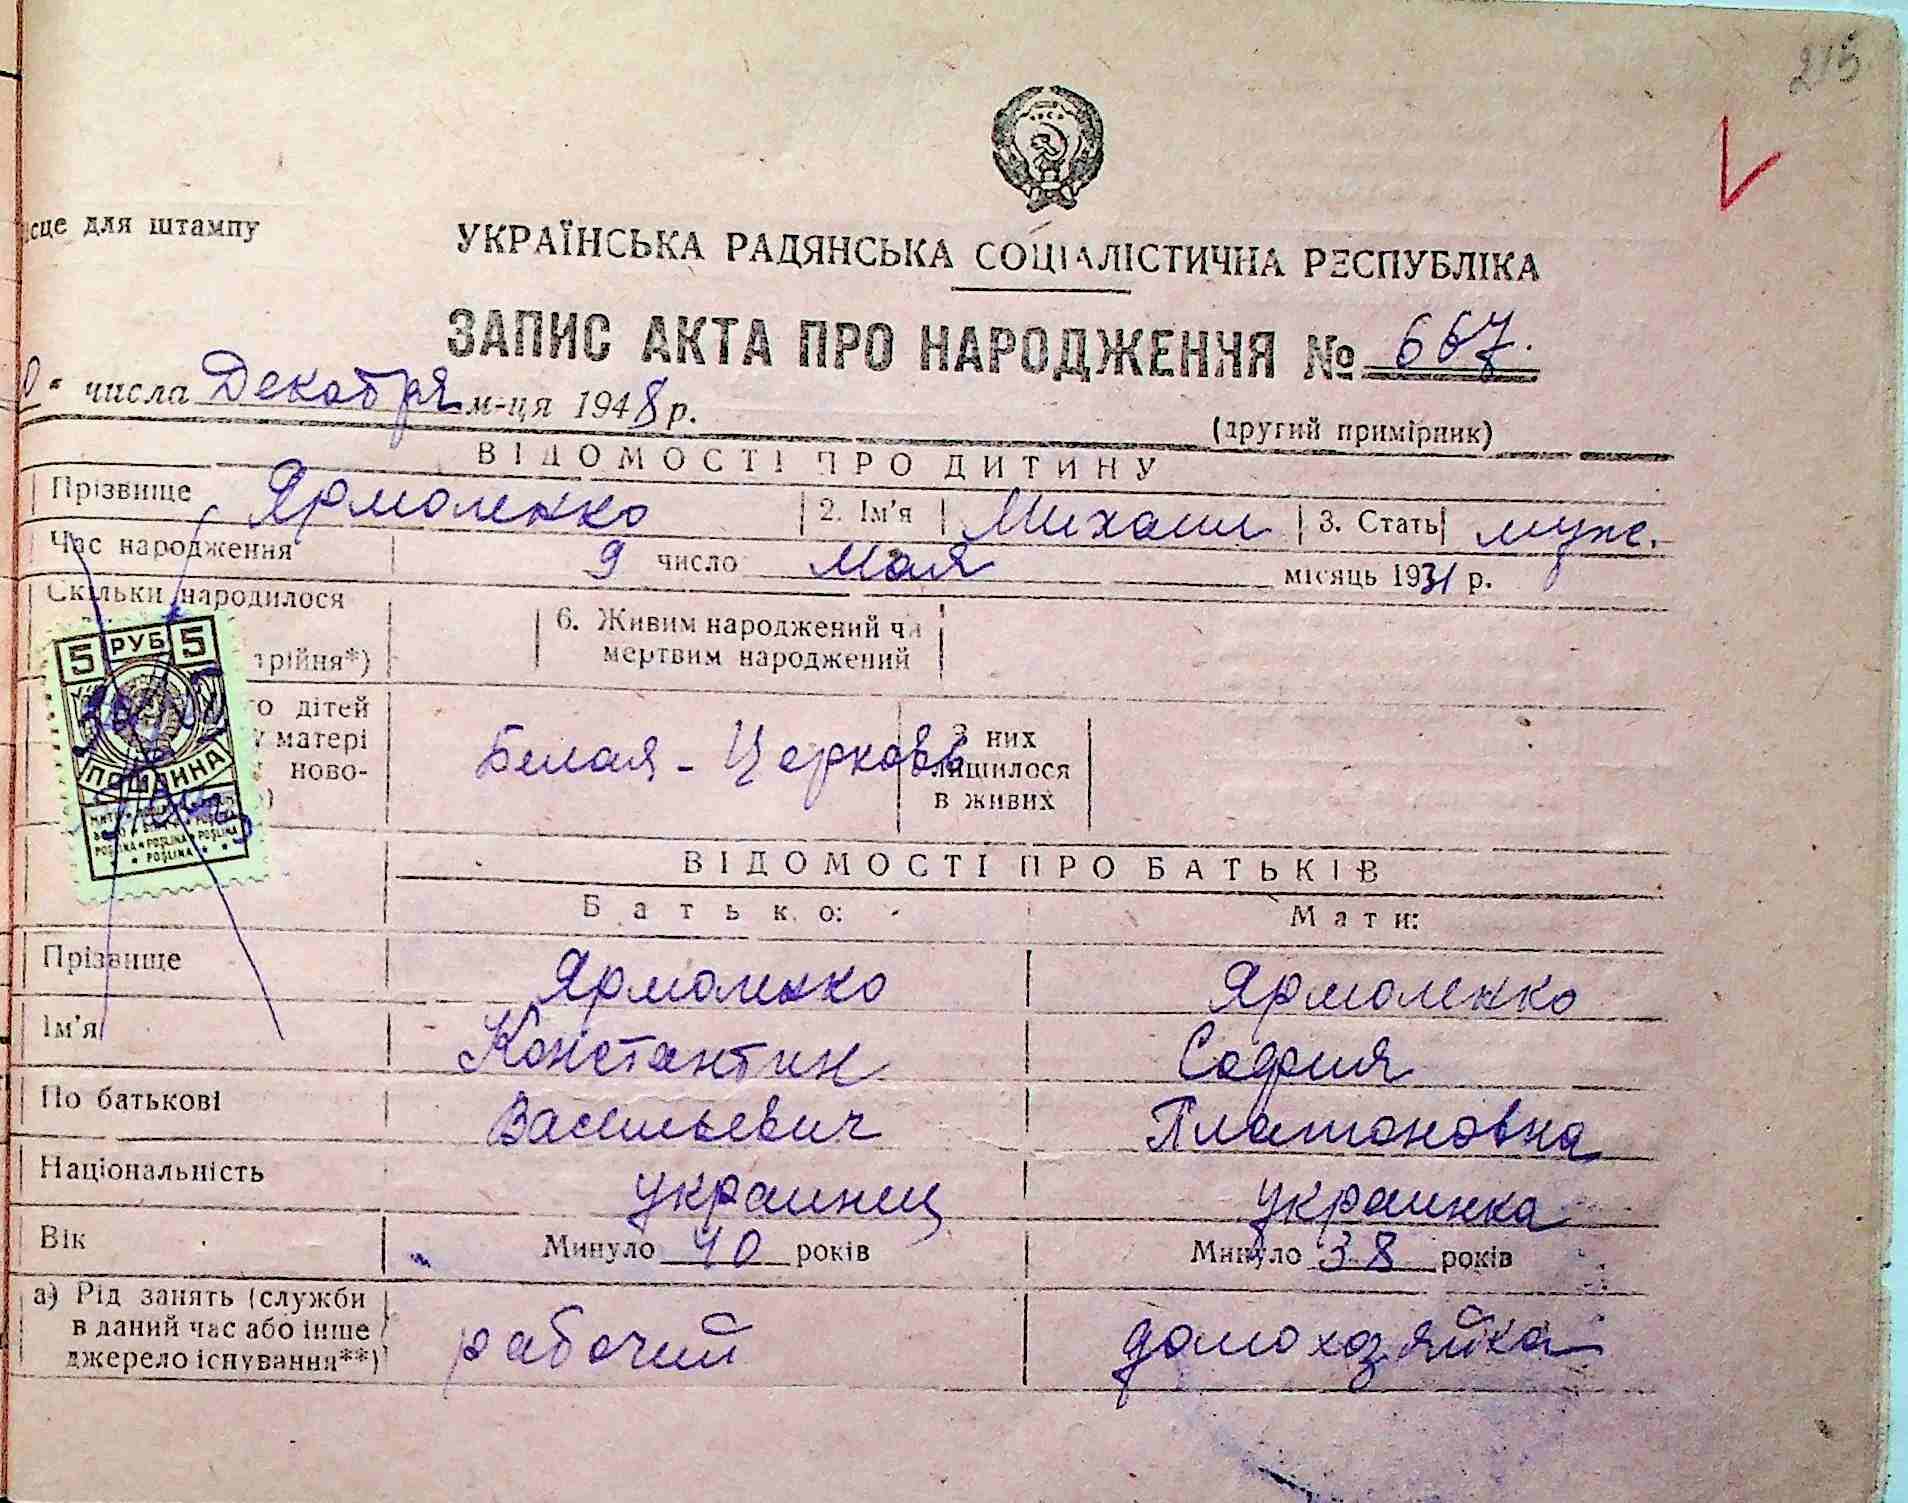 215
УКРАЇНСЬКА РАДЯНСЬКА СОЦІАЛІСТИЧНА РЕСПУБЛІКА
сце для штампу
ЗАПИС АКТА ПРО НАРОДЖЕННЯ № 667.
0 " числа Декабря м-ця 1948 р.
(другий примірник)
ВІДОМОСТІ ПРО ДИТИНУ
Прізвище Ярмоленко 2. Ім'я Михаил 3. Стать муж.
Час народження 9 число Мая місяць 1931 р.
Скільки народилося
6. Живим народжений чи
мертвим народжений
трійня*)
го дітей
у матері
ново-
)
Белая-Церковь
З них
лишилося
в живих
5 РУБ 5
ПОШЛИНА
POŞLINA
ВІДОМОСТІ ПРО БАТЬКІВ
Батько: Мати:
Прізвище Ярмоленко Ярмоленко
Ім'я Константин София
По батькові Васильевич Платоновна
Національність украинец украинка
Вік Минуло 40 років Минуло 38 років
а) Рід занять (служби
в даний час або інше
джерело існування**)
рабочий домохозяйка